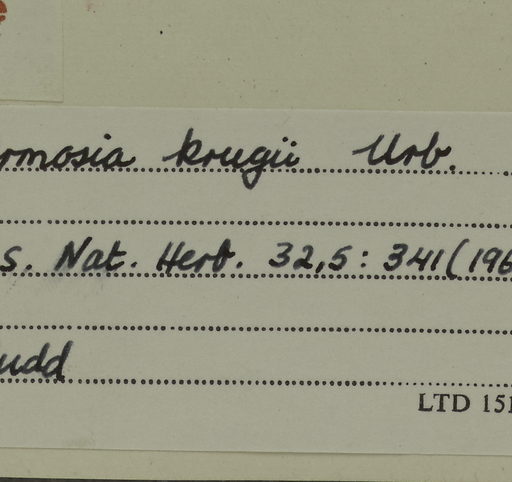 rmosia krugii Urb.
s. Nat. Herb. 32,5: 341(196
udd
LTD 151